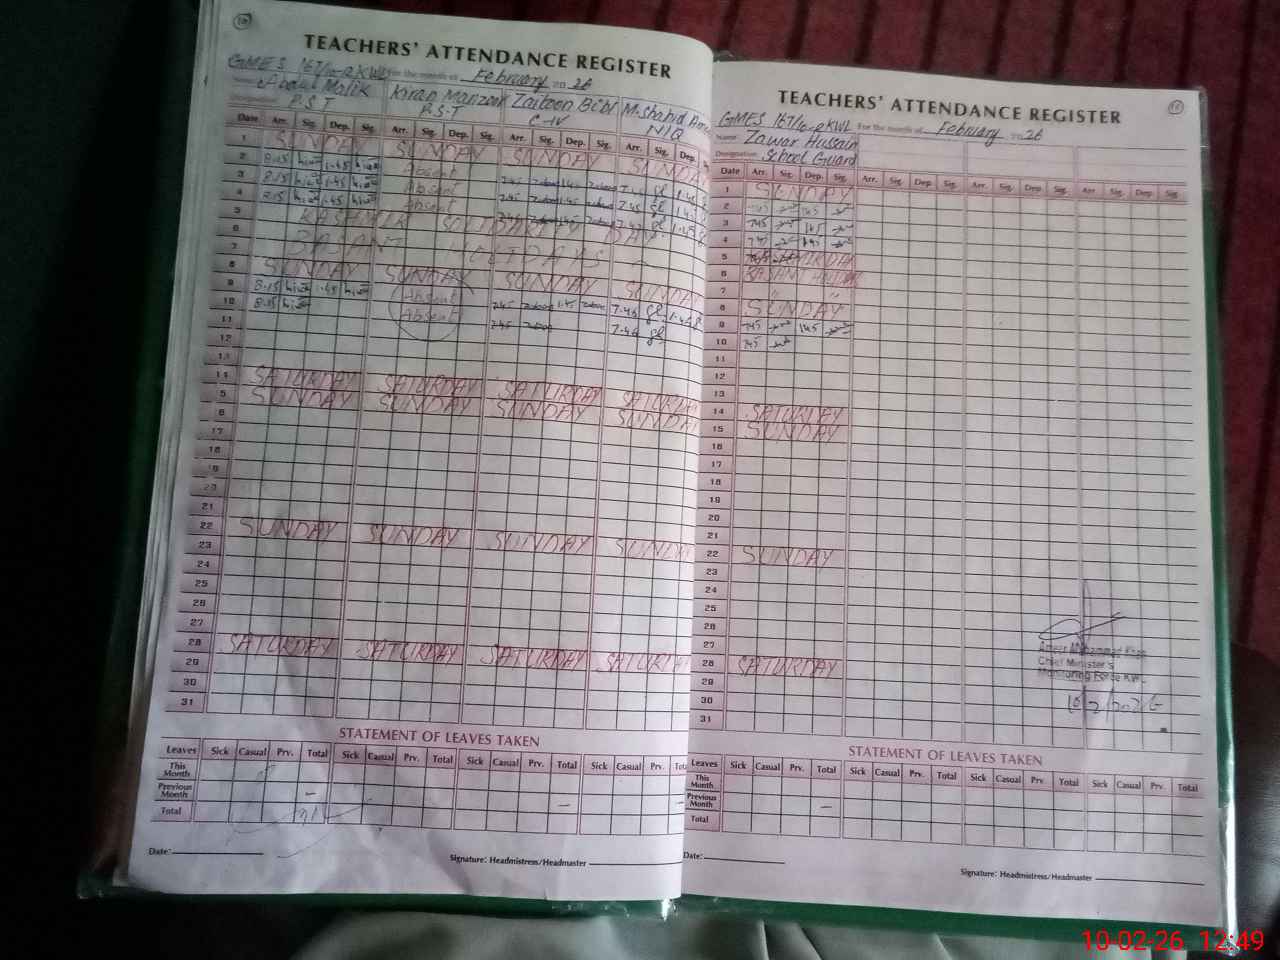 18
TEACHERS' ATTENDANCE REGISTER
GMES 167/10-R KWL For the month of February 2026
Name Abdul Malik Kiran Manzoor Zaitoon Bibi M. Shahid
Designation P.S.T P.S.T C-IV N/Q
Date Arr. Sig. Dep. Sig. Arr. Sig. Dep. Sig. Arr. Sig. Dep. Sig. Arr. Sig. Dep.
1 SUNDAY SUNDAY SUNDAY SUNDAY
2 8.15 1.45 Absent 7.45 1.45 7.45 1.45
3 8.15 1.45 Absent 7.45 1.45 7.45 1.45
4 8.15 1.45 Absent 7.45 1.45 7.45 1.45
5 KASHMIR SOLIDARITY DAY
6 BASANT HOLIDAYS
7
8 SUNDAY SUNDAY SUNDAY SUNDAY
9 8.15 1.45 Absent 7.45 1.45 7.45 1.45
10 8.15 Absent 7.45 7.45
11
12
13
14 SATURDAY SATURDAY SATURDAY SATURDAY
15 SUNDAY SUNDAY SUNDAY SUNDAY
16
17
18
19
20
21
22 SUNDAY SUNDAY SUNDAY SUNDAY
23
24
25
26
27
28 SATURDAY SATURDAY SATURDAY SATURDAY
29
30
31
STATEMENT OF LEAVES TAKEN
Leaves Sick Casual Prv. Total Sick Casual Prv. Total Sick Casual Prv. Total Sick Casual Prv. Total
This Month
Previous Month
Total
Date: Signature: Headmistress/Headmaster
TEACHERS' ATTENDANCE REGISTER
GMES 167/10-R KWL For the month of February 2026
Name Zawar Hussain
Designation School Guard
Date Arr. Sig. Dep. Sig. Arr. Sig. Dep. Sig. Arr. Sig. Dep. Sig. Arr. Sig. Dep. Sig.
1 SUNDAY
2 745 145
3 745 145
4 745 145
5
6 BASANT HOLIDAY
7 " "
8 SUNDAY
9 745 145
10 745
11
12
13
14 SATURDAY
15 SUNDAY
16
17
18
19
20
21
22 SUNDAY
23
24
25
26
27
28 SATURDAY
29
30
31
Ameer Muhammad Khan
Chief Minister's
Monitoring Force KWL
10/2/2026
STATEMENT OF LEAVES TAKEN
Leaves Sick Casual Prv. Total Sick Casual Prv. Total Sick Casual Prv. Total Sick Casual Prv. Total
This Month
Previous Month
Total
Date: Signature: Headmistress/Headmaster
10-02-26 12:49